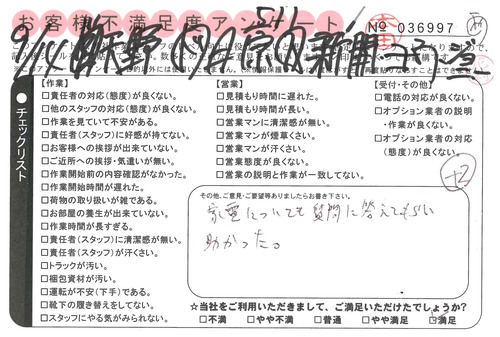 お客様不満足度アンケート
№ 036997
チェックリスト
【作業】
□責任者の対応(態度)が良くない。
□他のスタッフの対応(態度)が良くない。
□作業を見ていて不安がある。
□責任者(スタッフ)に好感が持てない。
□お客様への挨拶が出来ていない。
□ご近所への挨拶・気遣いが無い。
□作業開始前の内容確認がなかった。
□作業開始時間が遅れた。
□荷物の取り扱いが雑である。
□お部屋の養生が出来ていない。
□作業時間が長すぎる。
□責任者(スタッフ)に清潔感が無い。
□責任者(スタッフ)が汗くさい。
□トラックが汚い。
□梱包資材が汚い。
□運転が不安(下手)である。
□靴下の履き替えをしてない。
□スタッフにやる気がみられない。
【営業】
□見積もり時間に遅れた。
□見積もり時間が長い。
□営業マンに清潔感が無い。
□営業マンが煙草くさい。
□営業マンが汗くさい。
□営業態度が良くない。
□営業の説明と作業が一致してない。
【受付・その他】
□電話の対応が良くない。
□オプション業者の説明
・作業が良くない。
□オプション業者の対応
(態度)が良くない。
+2
その他、ご意見・ご要望等ありましたらお書き下さい。
家電についても質問に答えてもらい
助かった。
☆当社をご利用いただきまして、ご満足いただけたでしょうか?
□不満 □やや不満 □普通 □やや満足 □満足